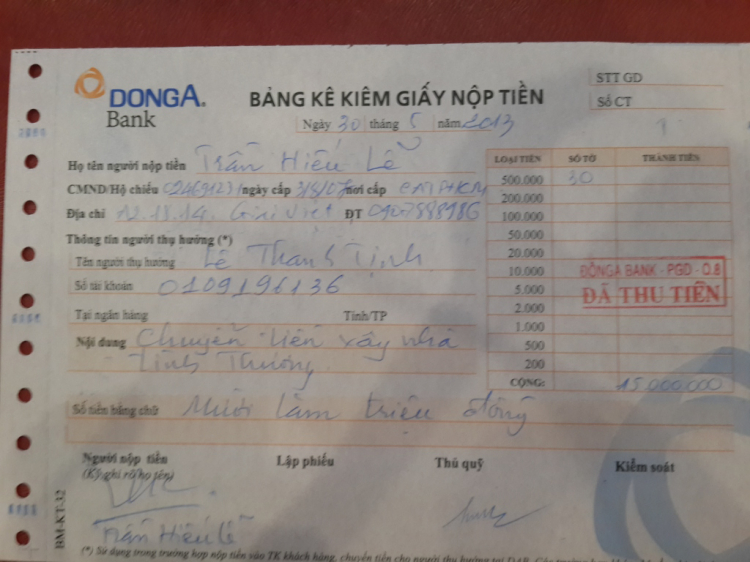 DONGA Bank
BẢNG KÊ KIÊM GIẤY NỘP TIỀN
STT GD
Số CT
Ngày 30 tháng 5 năm 2013
Họ tên người nộp tiền Trần Hiếu Lễ
CMND/Hộ chiếu ngày cấp nơi cấp
Địa chỉ ĐT
Thông tin người thụ hưởng (*)
Tên người thụ hưởng Lê Thanh Tịnh
Số tài khoản 0109196136
Tại ngân hàng Tỉnh/TP
Nội dung Chuyển tiền xây nhà
Tình Thương
LOẠI TIỀN SỐ TỜ THÀNH TIỀN
500.000 30
200.000
100.000
50.000
20.000
10.000
5.000
2.000
1.000
500
200
CỘNG: 15.000.000
ĐÔNGA BANK - PGD - Q.8
ĐÃ THU TIỀN
Số tiền bằng chữ Mười lăm triệu đồng
Người nộp tiền Lập phiếu Thủ quỹ Kiểm soát
(Ký ghi rõ họ tên)
Trần Hiếu Lễ
BM-KT-12
(*) Sử dụng trong trường hợp nộp tiền vào TK khách hàng, chuyển tiền cho người thụ hưởng tại DAB.